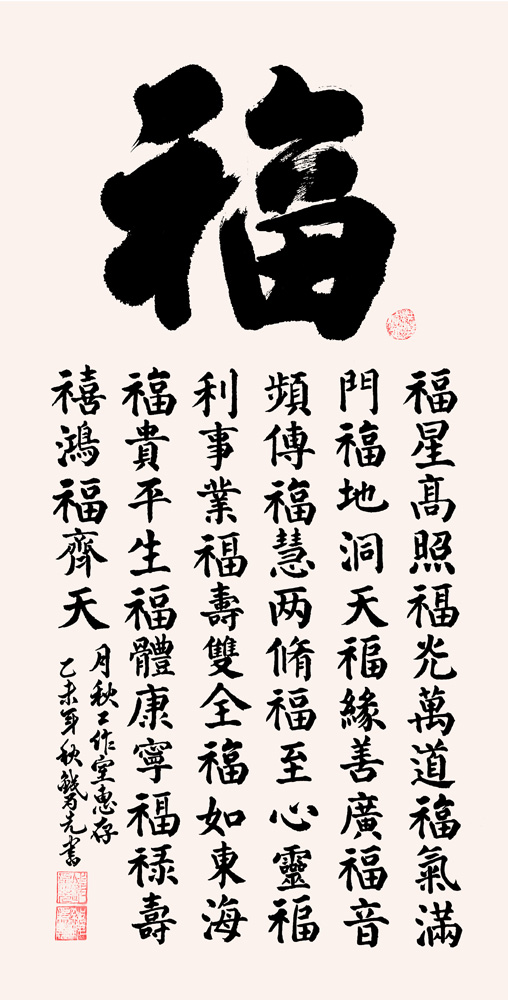 福
福星高照福光萬道福氣滿
門福地洞天福緣善廣福音
頻傳福慧两脩福至心靈福
利事業福壽雙全福如東海
福貴平生福體康寧福禄壽
禧鴻福齊天
月秋工作室惠存
乙未年秋 書